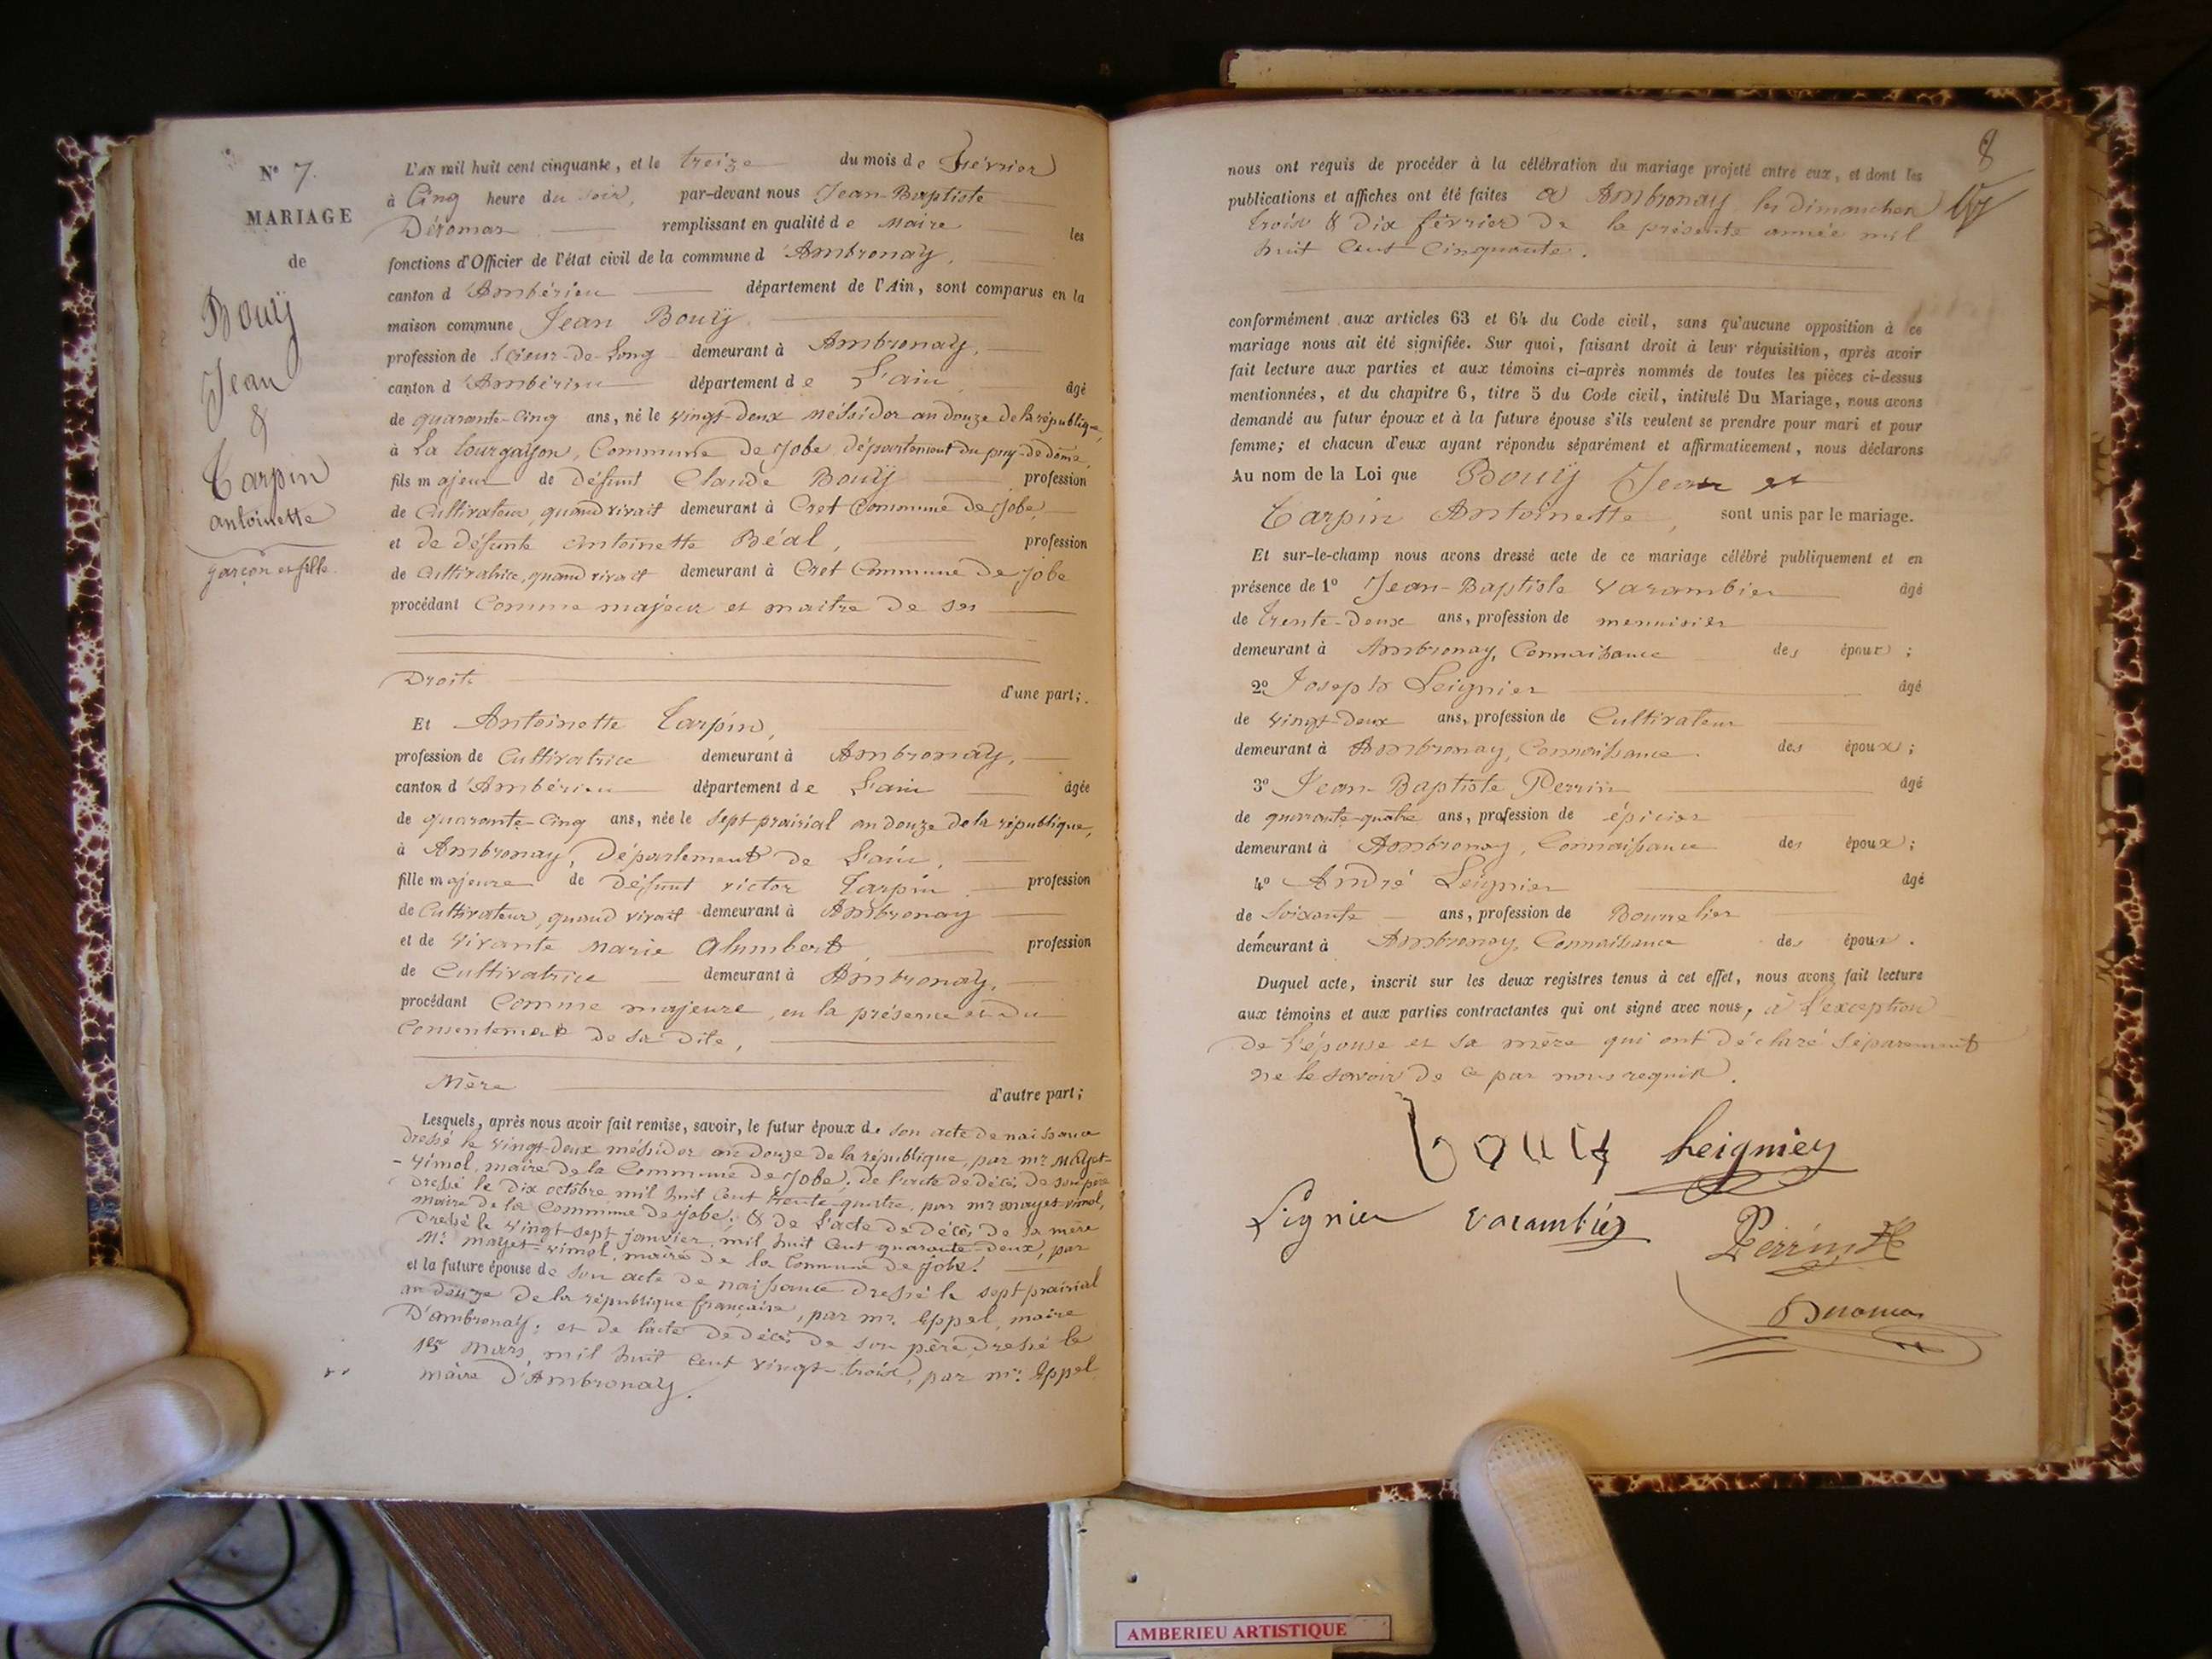 N° 7.
MARIAGE
de
Bouÿ
Jean
&
Tarpin
antoinette
garçon et fille.
L'AN mil huit cent cinquante, et le treize du mois de Février
à Cinq heure du soir, par-devant nous Jean-Baptiste
remplissant en qualité de Maire les
fonctions d'Officier de l'état civil de la commune d'Ambronay,
canton d'Ambérieu département de l'Ain, sont comparus en la
maison commune Jean Bouÿ
profession de Scieur-de-Long demeurant à Ambronay,
canton d'Ambérieu département de L'ain âgé
de quarante-Cinq ans, né le vingt-deux Messidor an douze de la république,
à La, Commune de Jobe, département du puy-de-dôme,
fils majeur de défunt Claude Bouÿ profession
de Cultivateur, quand vivait demeurant à Cret Commune de Jobe,
et de défunte Antoinette Béal, profession
de Cultivatrice, quand vivait demeurant à Cret Commune de Jobe
procédant Comme majeur et maître de ses
Droits d'une part;
Et Antoinette Tarpin,
profession de Cultivatrice demeurant à Ambronay,
canton d'Ambérieu département de L'ain âgée
de quarante-Cinq ans, née le Sept prairial an douze de la république,
à Ambronay, Département de L'ain,
fille majeure de défunt victor Tarpin profession
de Cultivateur, quand vivait demeurant à Ambronay
et de vivante Marie Alumbert, profession
de Cultivatrice demeurant à Ambronay,
procédant Comme majeure, en la présence et du
Consentement de sa dite,
Mère d'autre part;
Lesquels, après nous avoir fait remise, savoir, le futur époux de son acte de naissance
dressé le vingt-deux messidor an douze de la république, par mr Mayet-
-vimol, maire de la Commune de Jobe; de l'acte de décès de son père
dressé le dix octobre mil huit cent trente-quatre, par mr mayet-vimol,
maire de la Commune de Jobe; & de l'acte de décès de sa mère
dressé le vingt-sept janvier mil huit cent quarante-deux, par
Mr mayet-vimol, maire de la Commune de Jobe.
et la future épouse de son acte de naissance dressé le sept prairial
an douze de la république française, par mr. Eppel, maire
D'ambronay; et de l'acte de décès de son père dressé le
1er Mars, mil huit cent vingt-trois, par mr. Eppel
maire d'Ambronay.
8
nous ont requis de procéder à la célébration du mariage projeté entre eux, et dont les
publications et affiches ont été faites à Ambronay les dimanches
trois & dix février de la présente année mil
huit Cent Cinquante.
conformément aux articles 63 et 64 du Code civil, sans qu'aucune opposition à ce
mariage nous ait été signifiée. Sur quoi, faisant droit à leur réquisition, après avoir
fait lecture aux parties et aux témoins ci-après nommés de toutes les pièces ci-dessus
mentionnées, et du chapitre 6, titre 5 du Code civil, intitulé Du Mariage, nous avons
demandé au futur époux et à la future épouse s'ils veulent se prendre pour mari et pour
femme; et chacun d'eux ayant répondu séparément et affirmativement, nous déclarons
Au nom de la Loi que Bouÿ Jean et
Tarpin Antoinette, sont unis par le mariage.
Et sur-le-champ nous avons dressé acte de ce mariage célébré publiquement et en
présence de 1° Jean-Baptiste Varambier âgé
de trente-deux ans, profession de menuisier
demeurant à Ambronay, Connaissance des époux;
2° Joseph Leignier âgé
de vingt-deux ans, profession de Cultivateur
demeurant à Ambronay, Connaissance des époux;
3° Jean-Baptiste Perrin âgé
de quarante-quatre ans, profession de épicier
demeurant à Ambronay, Connaissance des époux;
4° André Leignier âgé
de Soixante ans, profession de Bourrelier
demeurant à Ambronay, Connaissance des époux.
Duquel acte, inscrit sur les deux registres tenus à cet effet, nous avons fait lecture
aux témoins et aux parties contractantes qui ont signé avec nous, à l'exception
de l'épouse et sa mère qui ont déclaré séparement
ne le savoir de ce par nous requis.
bouÿ Leigniey
Lignier varambier Perrin
AMBERIEU ARTISTIQUE